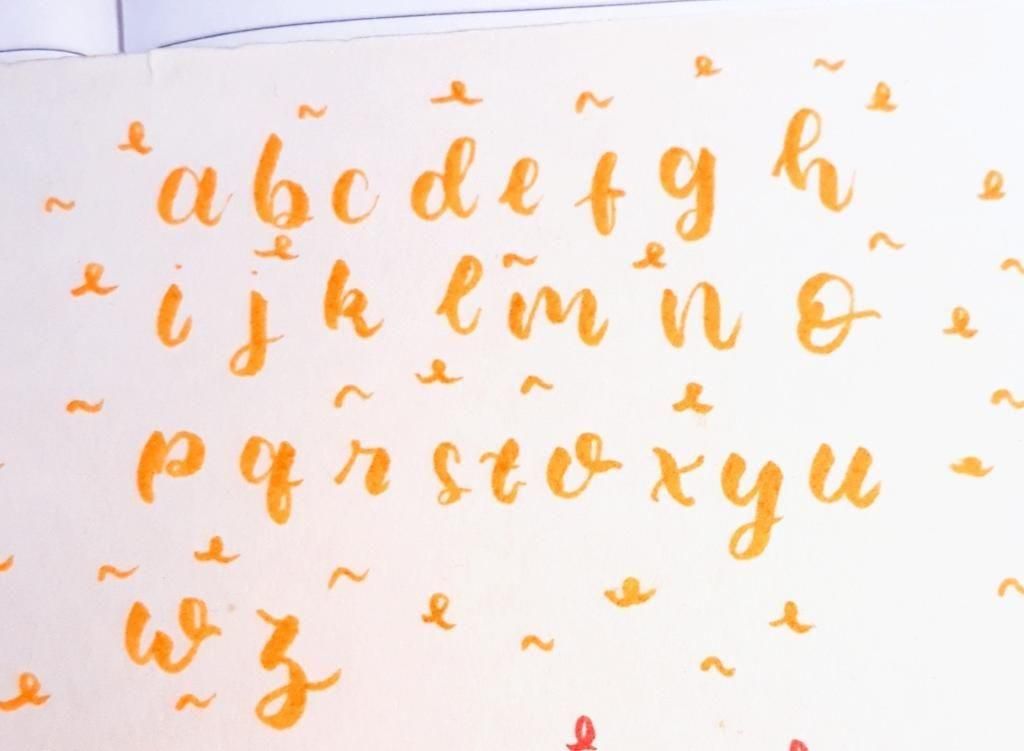 a b c d e f g h
i j k l m n o
p q r s t v x y u
w z